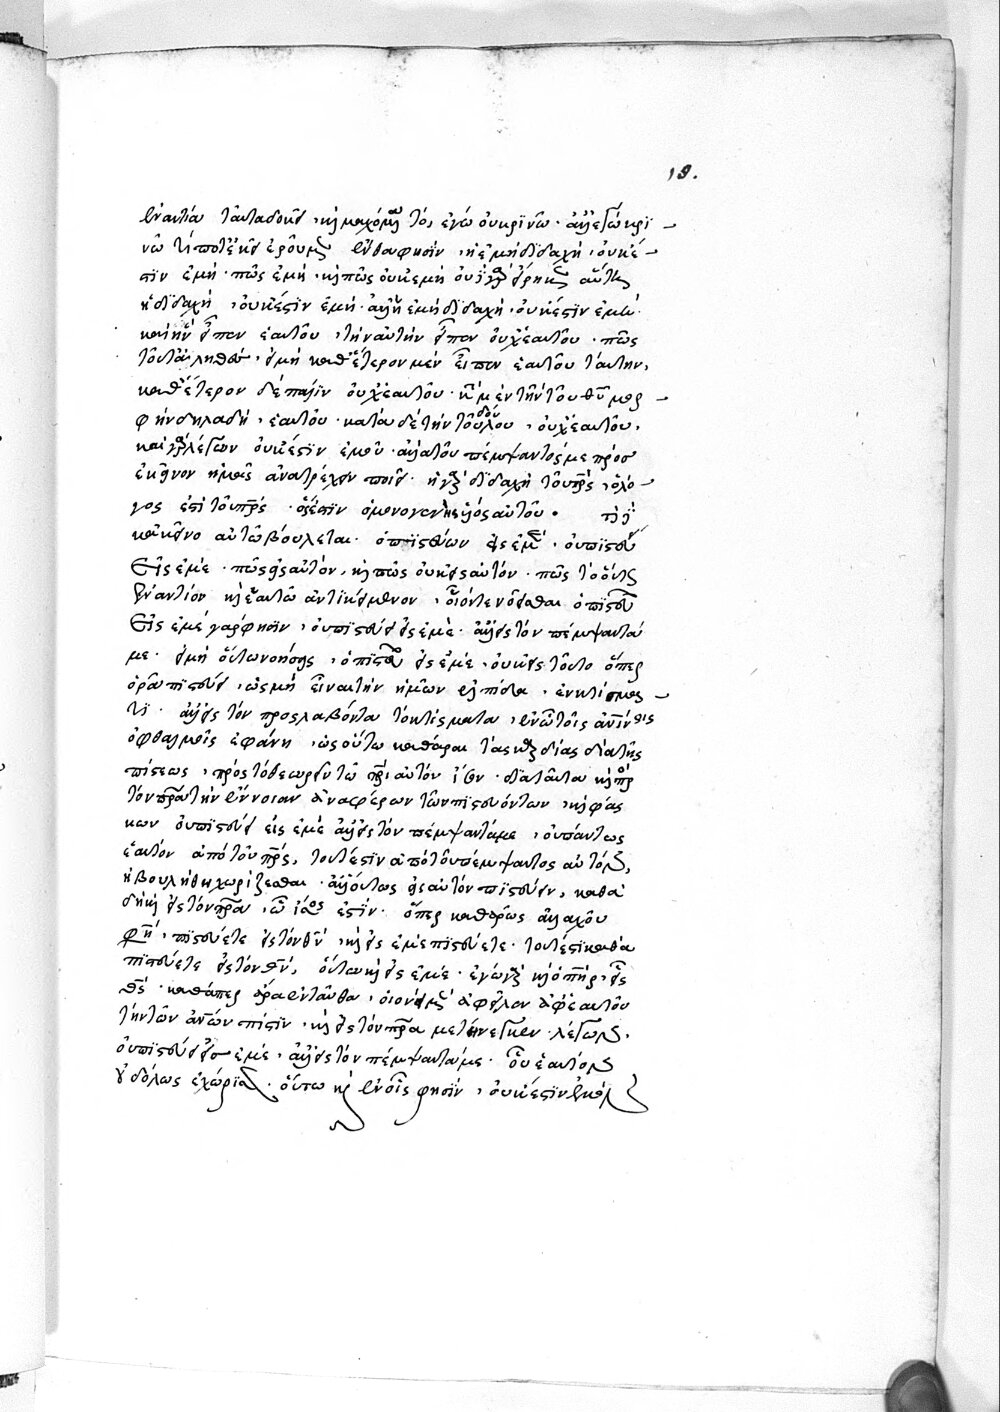 19.
ἐναντία ταῦτα δοκεῖ, καὶ μαχόμενα τό, ἐγὼ οὐ κρίνω· ἀλλ' ἐγὼ κρι
νῶ τί ποτ' ἐκεῖ ἐροῦμεν ἐνθα φησὶν, ἡ ἐμὴ διδαχὴ, οὐκ ἔ
στιν ἐμή· πῶς ἐμὴ, καὶ πῶς οὐκ ἐμὴ οὐ γὰρ
ἡ διδαχὴ, οὐκ ἔστιν ἐμή· ἀλλ' ἡ ἐμὴ διδαχὴ, οὐκ ἔστιν ἐμή·
καὶ ἣν εἶπεν ἑαυτοῦ, τὴν αὐτὴν εἶπεν οὐχ ἑαυτοῦ· πῶς
τοῦτ' ἀληθὲς, εἰ μὴ καθ' ἕτερον μὲν εἶπεν ἑαυτοῦ ταύτην,
καθ' ἕτερον δὲ πάλιν οὐχ ἑαυτοῦ· κατὰ μὲν τὴν τοῦ θεοῦ μορ
φὴν δηλαδὴ, ἑαυτοῦ· κατὰ δὲ τὴν τοῦ δούλου, οὐχ ἑαυτοῦ,
καὶ γὰρ λέγων οὐκ ἔστιν ἐμοῦ· ἀλλὰ τοῦ πέμψαντός με πρὸς
ἐκεῖνον ἡμᾶς ἀνατρέχειν ποιεῖ· ἡ γὰρ διδαχὴ τοῦ πατρός, ὁ λό
γος ἐστὶ τοῦ πατρός· ὅς ἐστιν ὁ μονογενὴς υἱὸς αὐτοῦ·
κἀκεῖνο αὐτῷ βούλεται· ὁ πιστεύων εἰς ἐμὲ, οὐ πιστεύει
εἰς ἐμέ· πῶς εἰς αὐτὸν, καὶ πῶς οὐκ εἰς αὐτόν· πῶς τὸ οὕτως
ἐναντίον καὶ ἑαυτῷ ἀντικείμενον, οἷόν τε νοεῖσθαι ὁ πιστεύων
εἰς ἐμὲ γάρ φησιν, οὐ πιστεύει εἰς ἐμέ· ἀλλ' εἰς τὸν πέμψαντά
με· εἰ μὴ οὕτω νοήσῃς, ὁ πιστεύων εἰς ἐμὲ, οὐκ εἰς τοῦτο ὅπερ
ὁρᾷ πιστεύει, ὡς μὴ εἶναι τὴν ἡμῶν ἐλπίδα, ἐν κτίσμα
τι· ἀλλ' εἰς τὸν προσλαβόντα τὸ κτίσμα, ἐν ᾧ τοῖς ἀνθρωπίνοις
ὀφθαλμοῖς ἐφάνη, ὡς οὕτω καθᾶραι τὰς καρδίας διὰ τῆς
πίστεως, πρὸς τὸ θεωρεῖν τῷ πατρὶ αὐτὸν ἴσον· διὰ ταῦτα καὶ πρὸς
τὸν πατέρα τὴν ἔννοιαν ἀναφέρων τῶν πιστευόντων, καὶ φάς
κων οὐ πιστεύει εἰς ἐμὲ ἀλλ' εἰς τὸν πέμψαντά με, οὐ πάντως
ἑαυτὸν ἀπὸ τοῦ πατρός, τουτέστιν ἀπὸ τοῦ πέμψαντος αὐτὸν,
ἠβουλήθη χωρίζεσθαι· ἀλλ' οὕτως εἰς αὐτὸν πιστεύειν, καθὰ
δὴ καὶ εἰς τὸν πατέρα, ᾧ ἴσος ἐστίν· ὅπερ καθαρῶς ἀλλαχοῦ
φησί, πιστεύετε εἰς τὸν θεόν, καὶ εἰς ἐμὲ πιστεύετε· τουτέστι καθὰ
πιστεύετε εἰς τὸν θεόν, οὕτω καὶ εἰς ἐμέ· ἐγὼ γὰρ καὶ ὁ πατὴρ, εἷς
θεός· καθάπερ ἄρα ἐνταῦθα, οἱονεὶ ἀφεῖλεν ἀφ' ἑαυτοῦ
τὴν τῶν ἀνθρώπων πίστιν, καὶ εἰς τὸν πατέρα μετήνεγκεν λέγων,
οὐ πιστεύει εἰς ἐμέ, ἀλλ' εἰς τὸν πέμψαντά με· οὗ ἑαυτὸν
οὐδόλως ἐχώρισεν· οὕτω καὶ ἐν οἷς φησὶν, οὐκ ἔστιν ἐμὸν